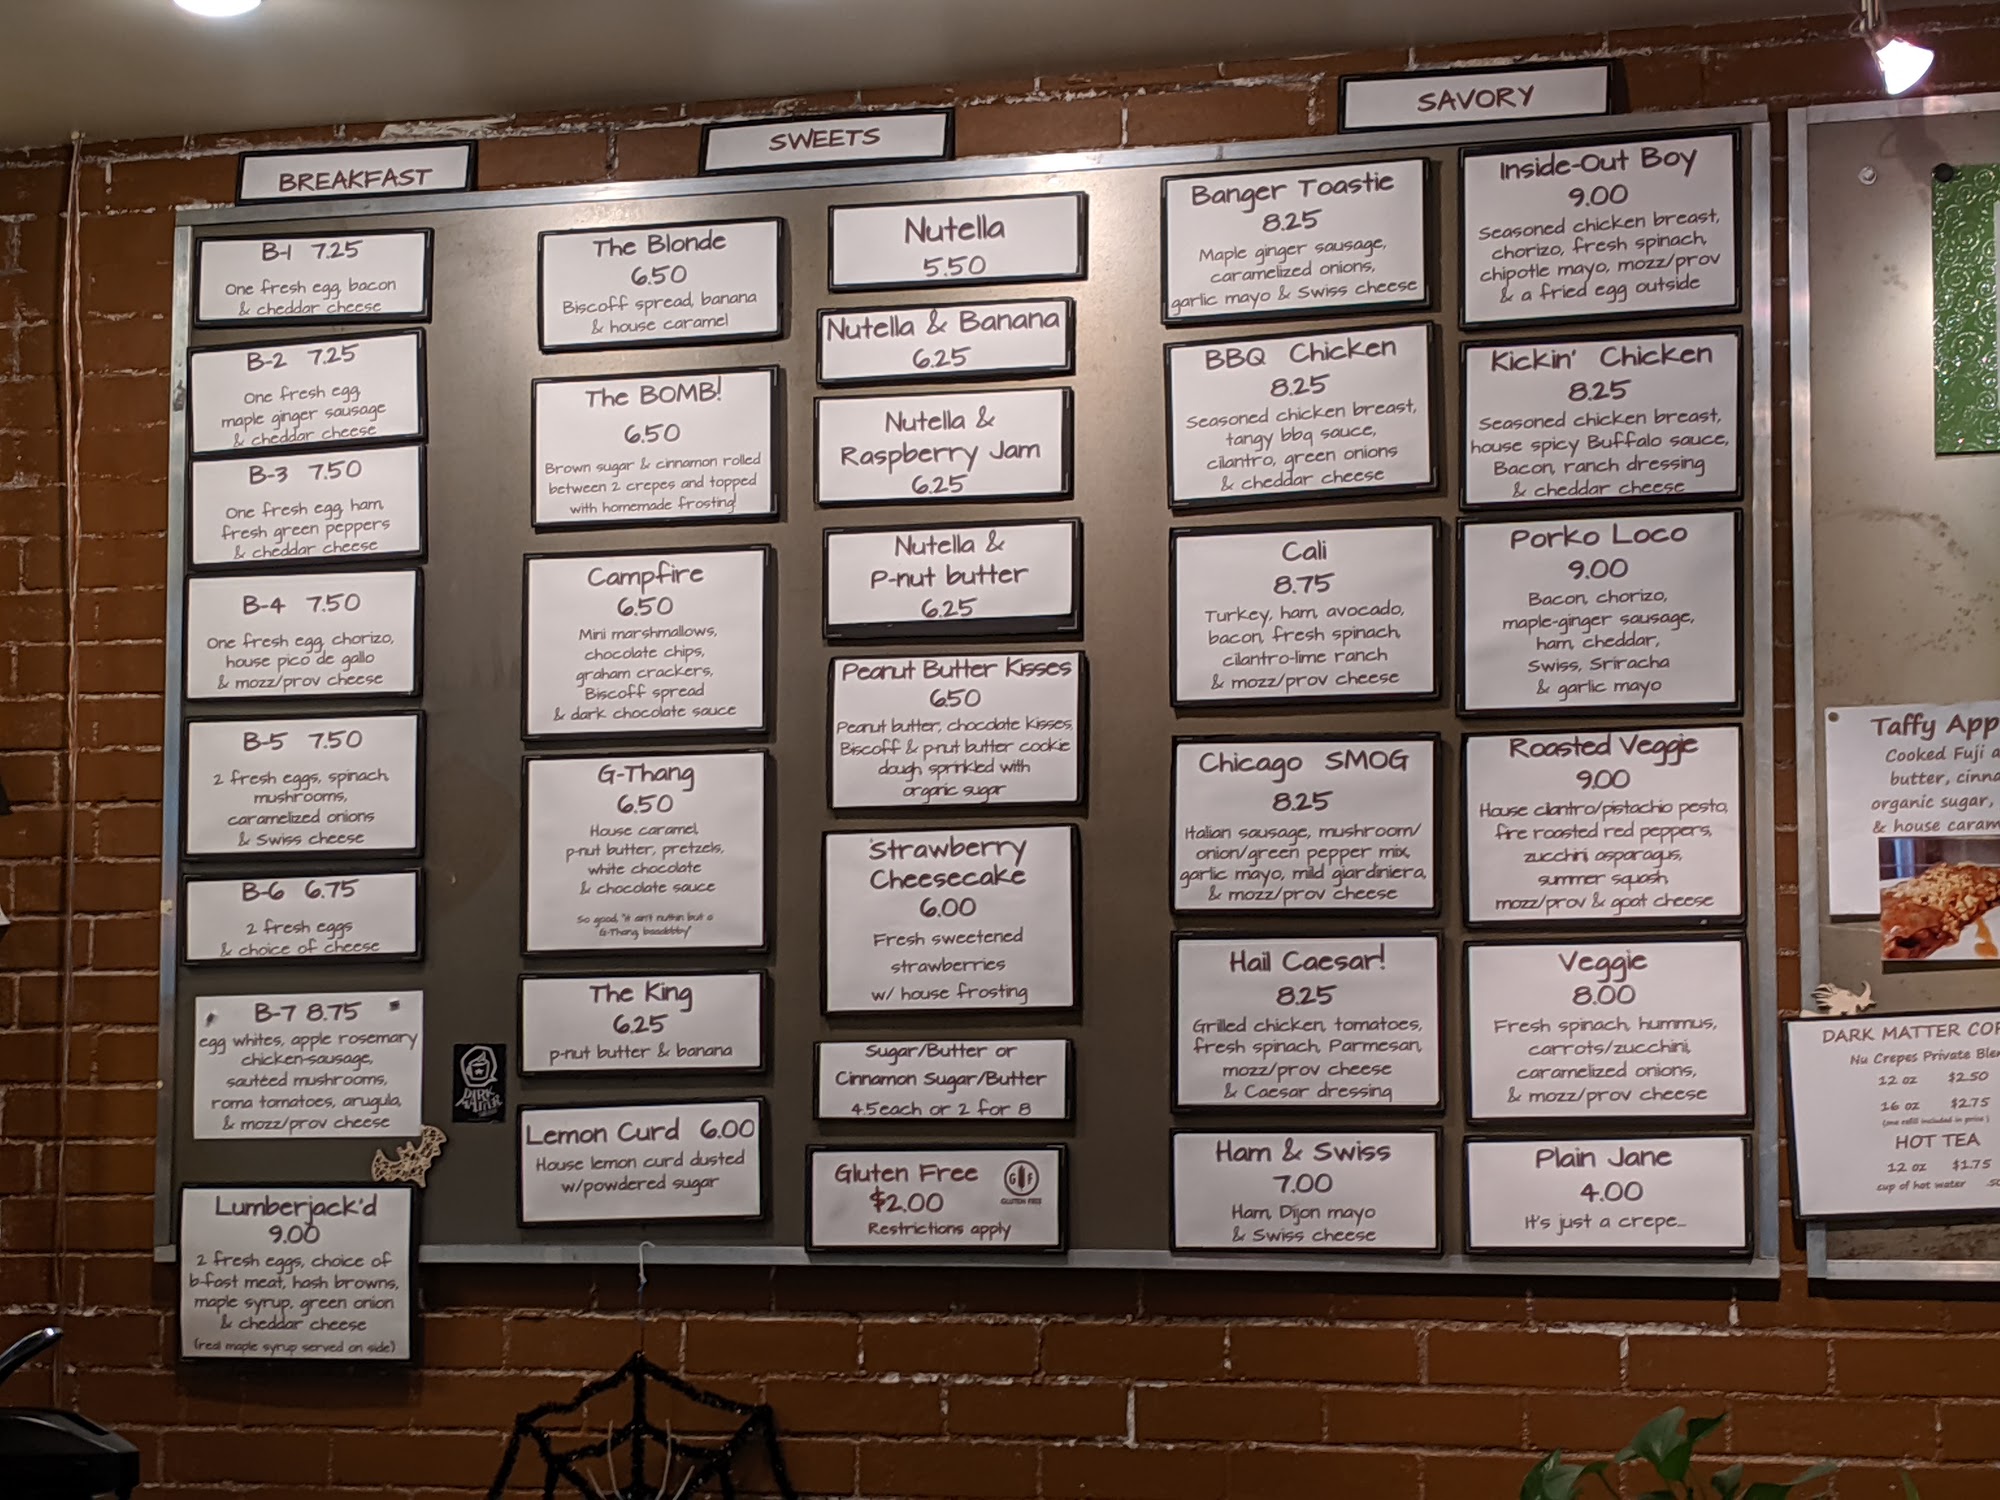 BREAKFAST
B-1 7.25
One fresh egg, bacon
& cheddar cheese
B-2 7.25
One fresh egg,
maple ginger sausage
& cheddar cheese
B-3 7.50
One fresh egg, ham,
fresh green peppers
& cheddar cheese
B-4 7.50
One fresh egg, chorizo,
house pico de gallo
& mozz/prov cheese
B-5 7.50
2 fresh eggs, spinach,
mushrooms,
caramelized onions
& Swiss cheese
B-6 6.75
2 fresh eggs
& choice of cheese
B-7 8.75
egg whites, apple rosemary
chicken-sausage,
sautéed mushrooms,
roma tomatoes, arugula,
& mozz/prov cheese
Lumberjack'd
9.00
2 fresh eggs, choice of
b-fast meat, hash browns,
maple syrup, green onion
& cheddar cheese
(real maple syrup served on side)
DARK
MATTER
SWEETS
The Blonde
6.50
Biscoff spread, banana
& house caramel
The BOMB!
6.50
Brown sugar & cinnamon rolled
between 2 crepes and topped
with homemade frosting!
Campfire
6.50
Mini marshmallows,
chocolate chips,
graham crackers,
Biscoff spread
& dark chocolate sauce
G-Thang
6.50
House caramel,
p-nut butter, pretzels,
white chocolate
& chocolate sauce
So good, "it ain't nuthin but a
G-Thang, baaabbby"
The King
6.25
p-nut butter & banana
Lemon Curd 6.00
House lemon curd dusted
w/powdered sugar
Nutella
5.50
Nutella & Banana
6.25
Nutella &
Raspberry Jam
6.25
Nutella &
P-nut butter
6.25
Peanut Butter Kisses
6.50
Peanut butter, chocolate kisses,
Biscoff & p-nut butter cookie
dough sprinkled with
organic sugar
Strawberry
Cheesecake
6.00
Fresh sweetened
strawberries
w/ house frosting
Sugar/Butter or
Cinnamon Sugar/Butter
4.5each or 2 for 8
Gluten Free
$2.00
Restrictions apply
G F
GLUTEN FREE
SAVORY
Banger Toastie
8.25
Maple ginger sausage,
caramelized onions,
garlic mayo & Swiss cheese
BBQ Chicken
8.25
Seasoned chicken breast,
tangy bbq sauce,
cilantro, green onions
& cheddar cheese
Cali
8.75
Turkey, ham, avocado,
bacon, fresh spinach,
cilantro-lime ranch
& mozz/prov cheese
Chicago SMOG
8.25
Italian sausage, mushroom/
onion/green pepper mix,
garlic mayo, mild giardiniera,
& mozz/prov cheese
Hail Caesar!
8.25
Grilled chicken, tomatoes,
fresh spinach, Parmesan,
mozz/prov cheese
& Caesar dressing
Ham & Swiss
7.00
Ham, Dijon mayo
& Swiss cheese
Inside-Out Boy
9.00
Seasoned chicken breast,
chorizo, fresh spinach,
chipotle mayo, mozz/prov
& a fried egg outside
Kickin' Chicken
8.25
Seasoned chicken breast,
house spicy Buffalo sauce,
Bacon, ranch dressing
& cheddar cheese
Porko Loco
9.00
Bacon, chorizo,
maple-ginger sausage,
ham, cheddar,
Swiss, Sriracha
& garlic mayo
Roasted Veggie
9.00
House cilantro/pistachio pesto,
fire roasted red peppers,
zucchini, asparagus,
summer squash,
mozz/prov & goat cheese
Veggie
8.00
Fresh spinach, hummus,
carrots/zucchini,
caramelized onions,
& mozz/prov cheese
Plain Jane
4.00
It's just a crepe...
Taffy App
Cooked Fuji a
butter, cinna
organic sugar,
& house caram
DARK MATTER COF
Nu Crepes Private Ble
12 oz $2.50
16 oz $2.75
(one refill included in price)
HOT TEA
12 oz $1.75
cup of hot water .50